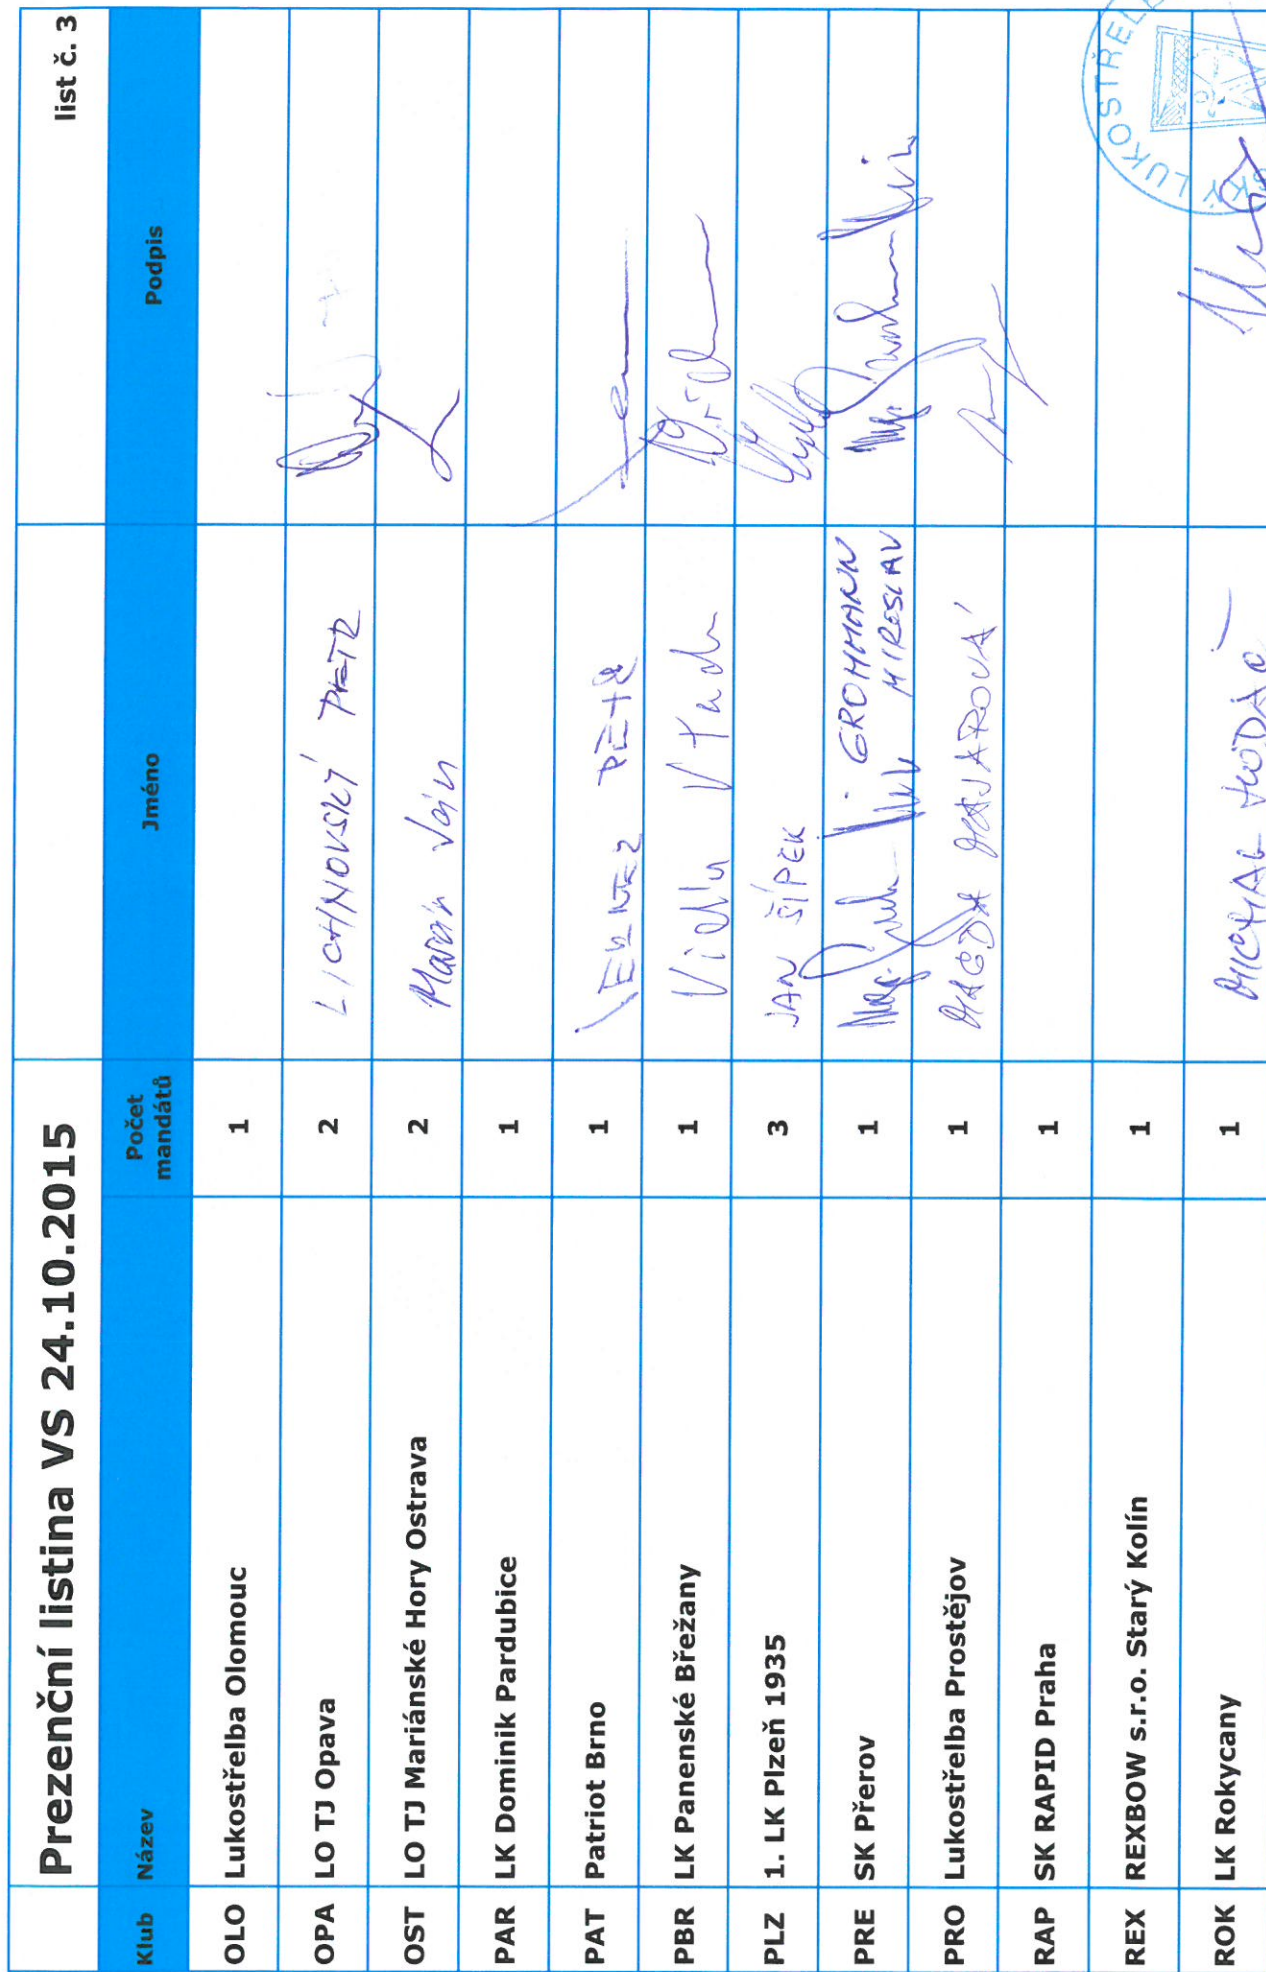 Prezenční listina VS 24.10.2015 list č. 3
Klub Název Počet mandátů Jméno Podpis
OLO Lukostřelba Olomouc 1
OPA LO TJ Opava 2 LICHNOVSKÝ PETR
OST LO TJ Mariánské Hory Ostrava 2
PAR LK Dominik Pardubice 1
PAT Patriot Brno 1 PETR
PBR LK Panenské Břežany 1
PLZ 1. LK Plzeň 1935 3 JAN ŠÍPEK
PRE SK Přerov 1 GROHMANN
MIROSLAV
PRO Lukostřelba Prostějov 1 MAGDA
RAP SK RAPID Praha 1
REX REXBOW s.r.o. Starý Kolín 1
ROK LK Rokycany 1 MICHAL
SKÝ LUKOSTŘELE